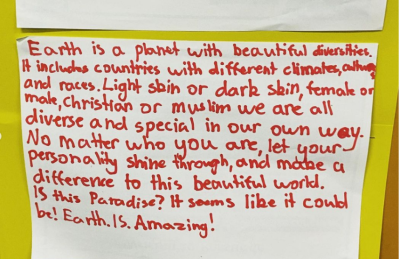 Earth is a planet with beautiful diversities.
It includes countries with different climates,
and races. Light skin or dark skin, female or
male, christian or muslim we are all
diverse and special in our own way.
No matter who you are, let your
personality shine through, and make a
difference to this beautiful world.
Is this Paradise? It seems like it could
be! Earth. IS. Amazing!